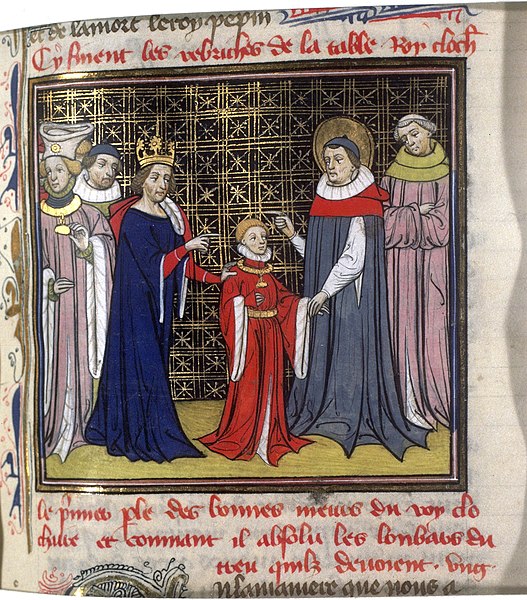 et de la mort le roy pepin
Cy finent les rebriches de la table Roy cloth
le p̃mier ple des bonnes meurs du roy clo
thaire et comment il absolu les lonbars du
treu quilz devoient · Ung
la maniere que nous a